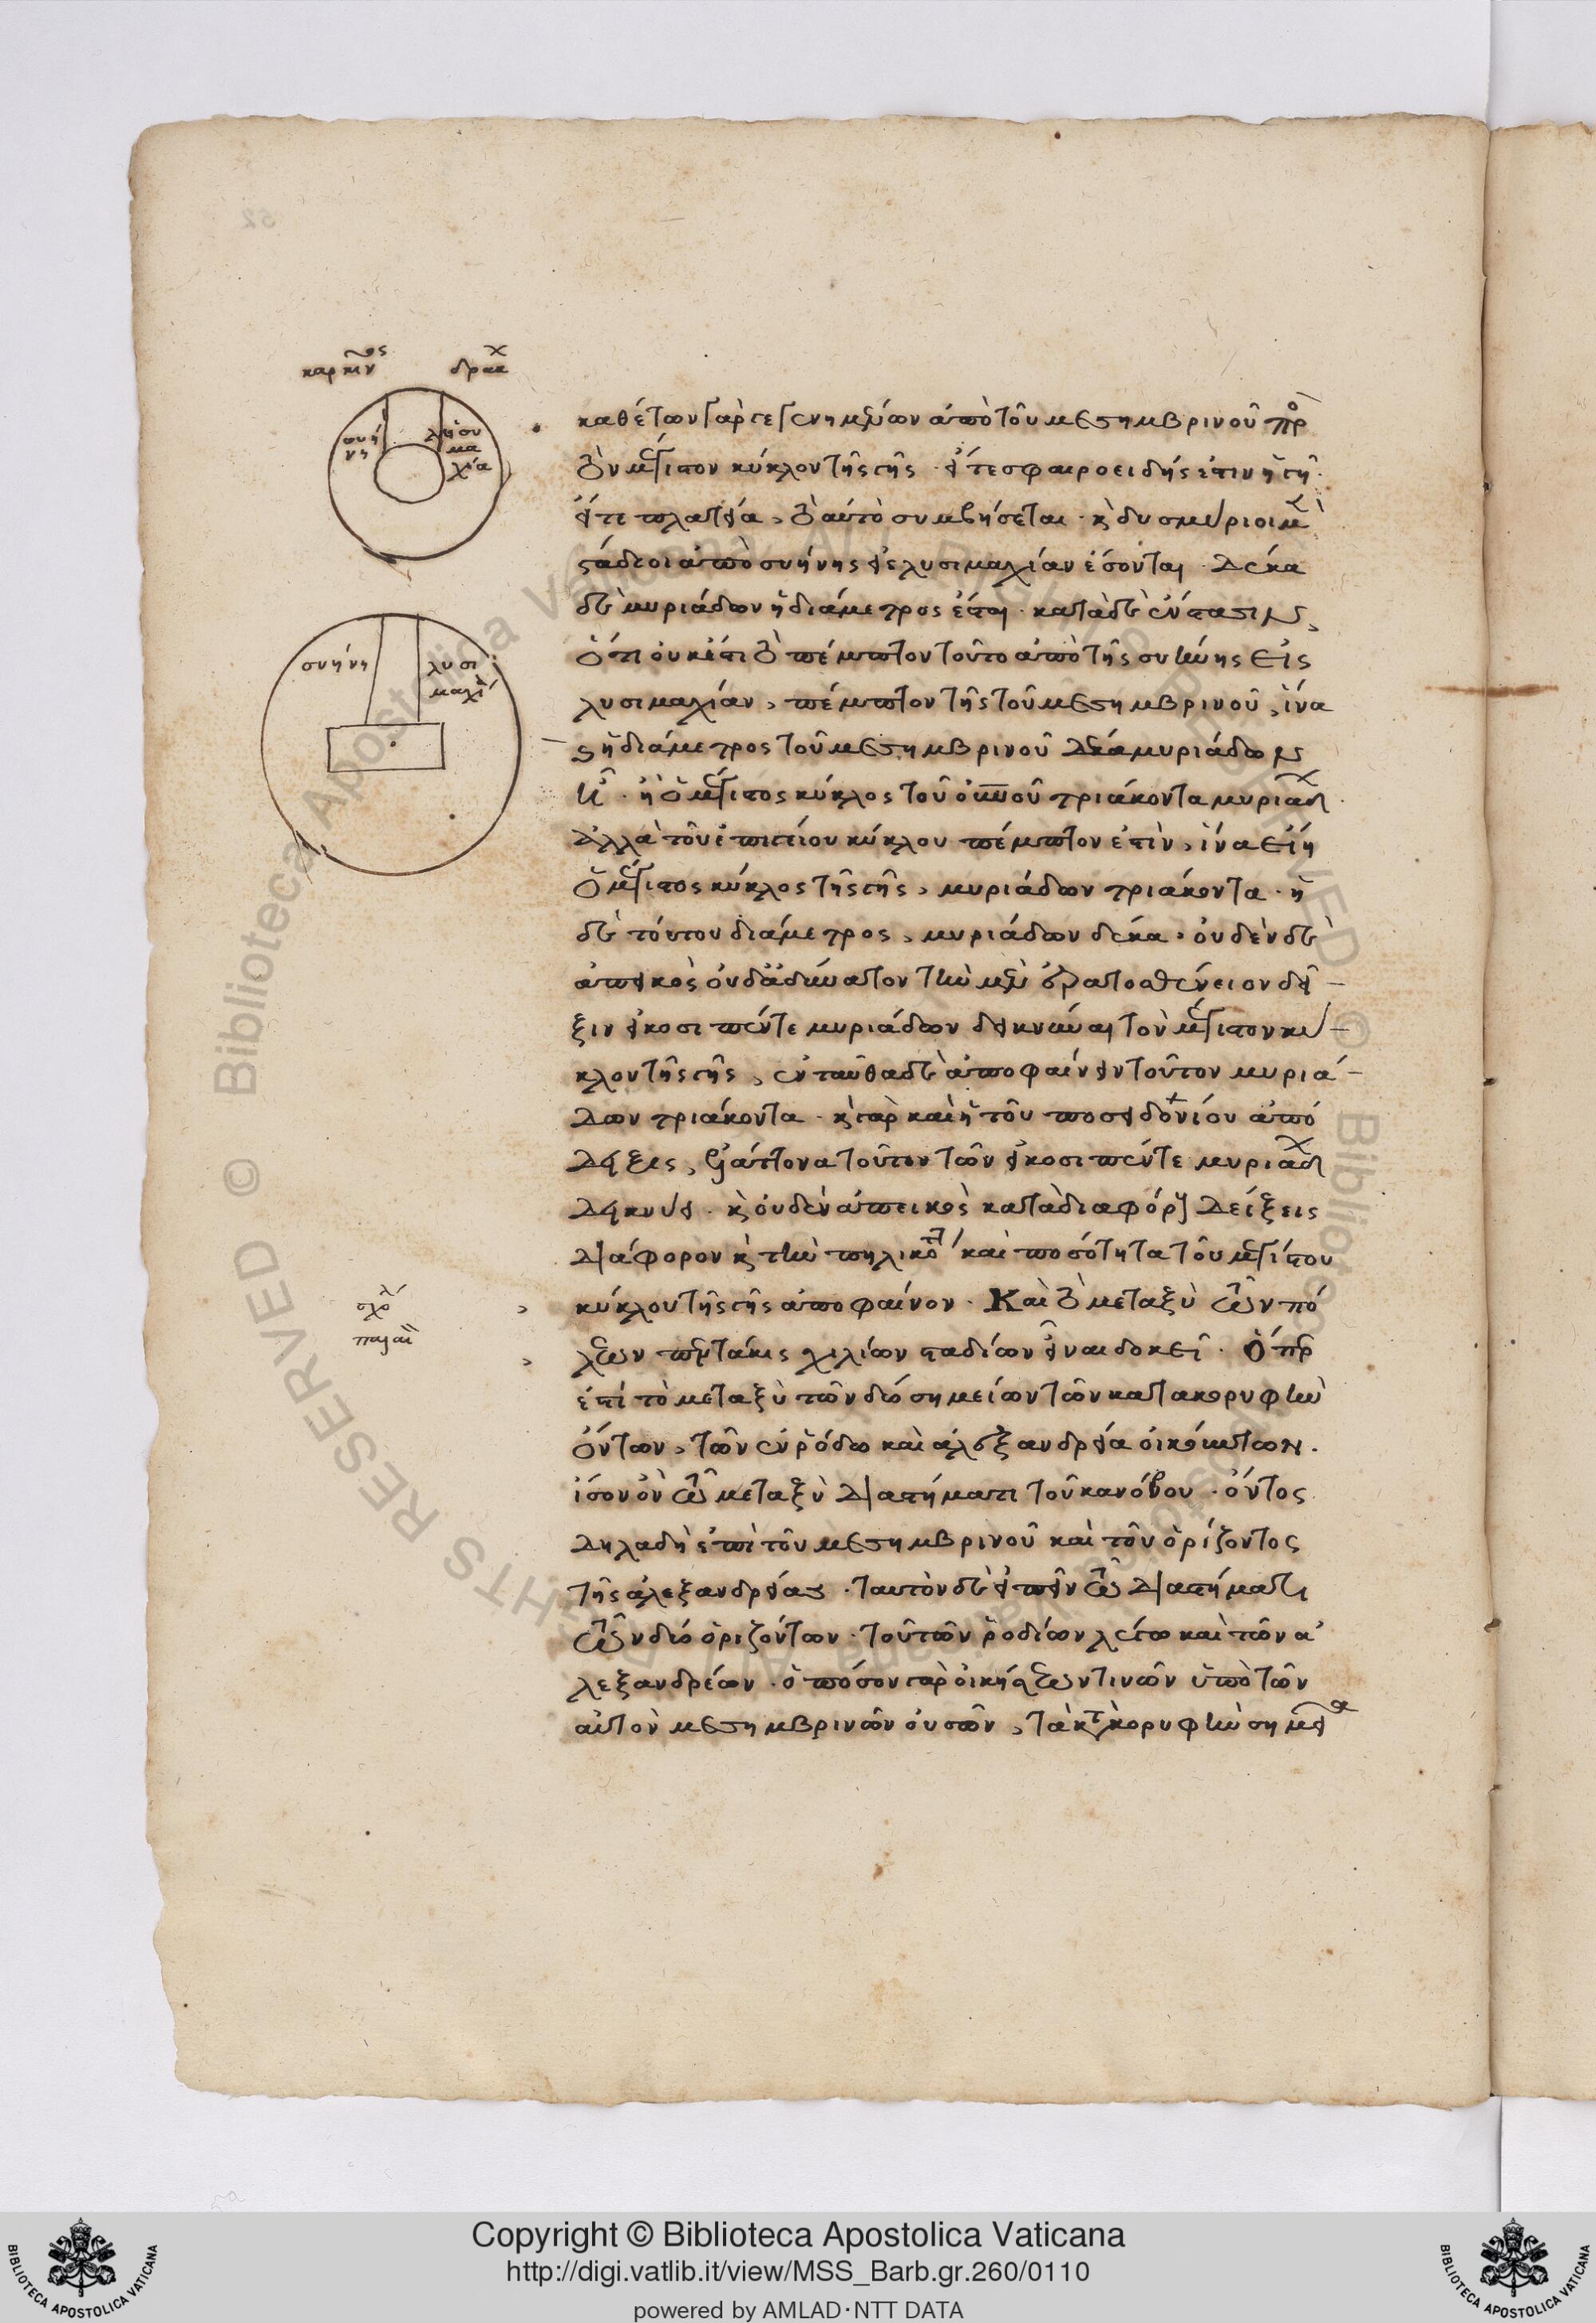 καρκινος δρακ
συή
νη
λυσι
μα
χία
καθέτων γὰρ γεγενημένων ἀπὸ τοῦ μεσημβρινοῦ πρὸ
τὸν μέγιστον κύκλον τῆς γῆς. εἴτε σφαιροειδής ἐστιν ἡ γῆ.
εἴτε πλατεῖα, τὸ αὐτὸ συμβήσεται. κ δυσμύριοι μὲ
στάδιοι ἀπὸ συήνης εἰς λυσιμαχίαν ἔσονται. δέκα
δὲ μυριάδων ἡ διάμετρος ἔσται. κατὰ δὲ ἔνστασιν,
συήνη λυσι
μαχί
ὅτι οὐκ ἔστι τὸ πέμπτον τοῦτο ἀπὸ τῆς συήνης εἰς
λυσιμαχίαν, πέμπτον τῆς τοῦ μεσημβρινοῦ, ἵνα
ἡ διάμετρος τοῦ μεσημβρινοῦ δέκα μυριάδων
ᾖ. ἢ ὁ μέγιστος κύκλος τοῦ οὐνοῦ τριάκοντα μυριαδ.
ἀλλὰ τοῦ ἐπιγείου κύκλου πέμπτον ἐστὶν, ἵνα εἴη
ὁ μέγιστος κύκλος τῆς γῆς, μυριάδων τριάκοντα. ἡ
δὲ τούτου διάμετρος, μυριάδων δέκα. οὐδὲν δὲ
ἀπεικὸς οὐδ' ἀδύνατον τὴν μὲν ἐρατοσθένειον δεῖ-
ξιν εἴκοσι πέντε μυριάδων δεικνύναι τὸν μέγιστον κύ-
κλον τῆς γῆς, ἐνταῦθα δὲ ἀποφαίνειν τοῦτον μυριά-
δων τριάκοντα. κ γὰρ καὶ ἡ τοῦ ποσειδονίου ἀπό
δειξις, ἐλάττονα τοῦτον τῶν εἴκοσι πέντε μυριαδ
δείκνυσι. κ οὐδὲν ἀπεικὸς κατὰ διαφόρους δείξεις
διάφορον κ τὴν πηλικότητα καὶ ποσότητα τοῦ μεγίστου
σχο
παλαι
κύκλου τῆς γῆς ἀποφαίνον. Καὶ τὸ μεταξὺ τῶν πό
λεων πεντάκις χιλίων σταδίων εἶναι δοκεῖ. Ὅπερ
ἐστί τὸ μεταξὺ τῶν δύο σημείων τῶν κατα κορυφὴν
ὄντων, τῶν ἐν ῥόδω καὶ ἀλεξανδρεία οἰκούντων.
ἴσον ὂν τῶ μεταξὺ διαστήματι τοῦ κανόβου. ὄντος
δηλαδὴ ἐπὶ τοῦ μεσημβρινοῦ καὶ τοῦ ὁρίζοντος
τῆς ἀλεξανδρείας. ταυτὸν δὲ εἰπεῖν τῶ διαστήματι
τῶν δύο ὁριζόντων. τοῦ τῶν ῥοδίων λέγω καὶ τῶν ἀ
λεξανδρέων. ὁπόσον γὰρ οἰκήσεων τινῶν ὑπὸ τῶν
αὐτὸν μεσημβρινῶν οὐσῶν, τὰ κατὰ κορυφὴν σημεῖα
Copyright © Biblioteca Apostolica Vaticana
http://digi.vatlib.it/view/MSS_Barb.gr.260/0110
powered by AMLAD·NTT DATA
BIBLIOTECA APOSTOLICA VATICANA
BIBLIOTECA APOSTOLICA VATICANA